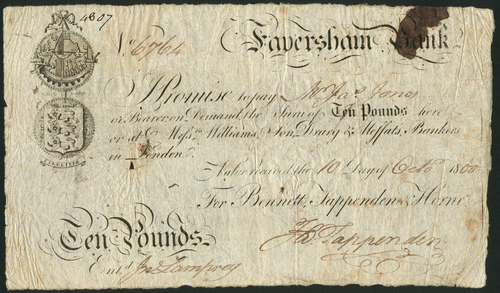 4807
No. 6764 Faversham Bank
I Promise to pay Mr. Jas. Jones
or Bearer on Demand the Sum of Ten Pounds here
or at Messrs. Williams, Son, Drury & Moffats, Bankers
in London
Value received the 10 Day of Octo. 1800
For Bennett, Tappenden & Horne
Ten Pounds
Jh Tappenden
Entd. Jno Tamprey